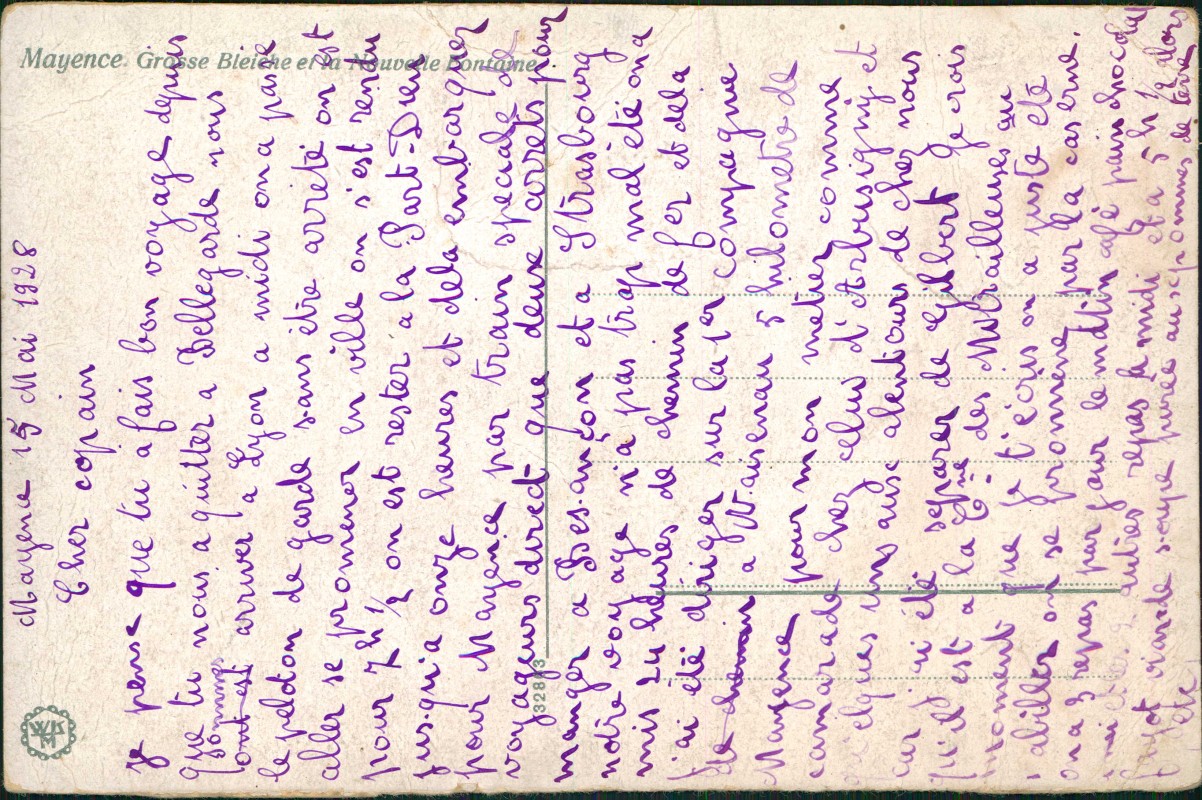 Mayence. Grosse Bleiche et la Nouvelle Fontaine.
32883
Mayence 15 Mai 1928
Cher copain
je pense que tu a fais bon voyage depuis
que tu nous a quitter a Bellegarde nous
sommes
arriver a Lyon a midi on a passe
le peloton de garde sans être arrêté on est
aller se promener en ville on s'est rendu
pour 7h 1/2 on est rester a la Part-Dieu
jus.qu'a onze heures et dela embarquer
pour Mayence par train speciale de
voyageurs direct que deux arrets pour
manger a Besançon et a Strasbourg
notre voyage n'a pas trop mal été on a
mis 24 heures de chemin de fer et dela
j'ai été diriger sur la 1er compagnie
a Waisenau 5 kilometre de
Mayence pour mon metier comme
camarade chez celui d'Arbusigny et
quelques uns aux alentours de chez nous
car j'ai été separer de Gilbert je crois
qu'il est a la Cie des Mitrailleuses au
moment que je t'écris on a juste été
abiller on se promene par la caserne.
on a 3 repas par jour le matin café pain chocolat
autres repas a midi et a 5h 1/2 alors
fayot viande soupe purée aussi pommes de terre
etc.